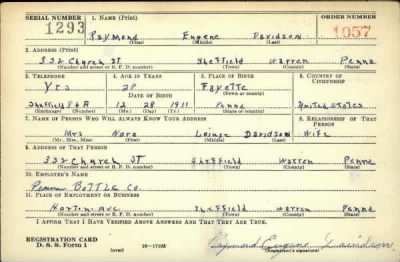 SERIAL NUMBER 1. NAME (Print) ORDER NUMBER
1293 Raymond Eugene Davidson 1057
(First) (Middle) (Last)
2. ADDRESS (Print)
332 Church ST Sheffield Warren Penna
(Number and street or R. F. D. number) (Town) (County) (State)
3. TELEPHONE 4. AGE IN YEARS 5. PLACE OF BIRTH 6. COUNTRY OF CITIZENSHIP
Yes 28 Fayette
DATE OF BIRTH (Town or county)
Sheffield 12 28 1911 Penna United States
(Exchange) (Number) (Mo.) (Day) (Yr.) (State or country)
7. NAME OF PERSON WHO WILL ALWAYS KNOW YOUR ADDRESS 8. RELATIONSHIP OF THAT PERSON
Mrs Nora Davidson Wife
(Mr., Mrs., Miss) (First) (Middle) (Last)
9. ADDRESS OF THAT PERSON
332 Church ST Sheffield Warren Penna
(Number and street or R. F. D. number) (Town) (County) (State)
10. EMPLOYER'S NAME
Penn Bottle Co.
11. PLACE OF EMPLOYMENT OR BUSINESS
Horton Ave Sheffield Warren Penna
(Number and street or R. F. D. number) (Town) (County) (State)
I AFFIRM THAT I HAVE VERIFIED ABOVE ANSWERS AND THAT THEY ARE TRUE.
REGISTRATION CARD
D. S. S. Form 1 (over) Raymond Eugene Davidson
(Registrant's signature)